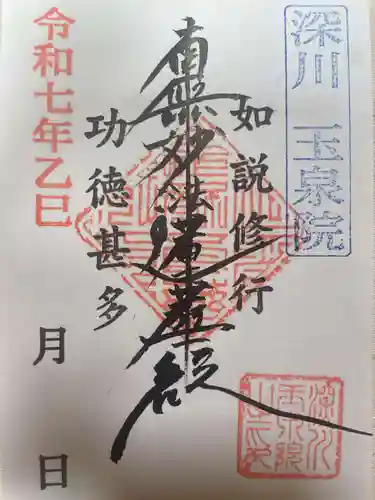 深川 玉泉院
如説修行
南無妙法蓮華経
功徳甚多
令和七年乙巳
月 日